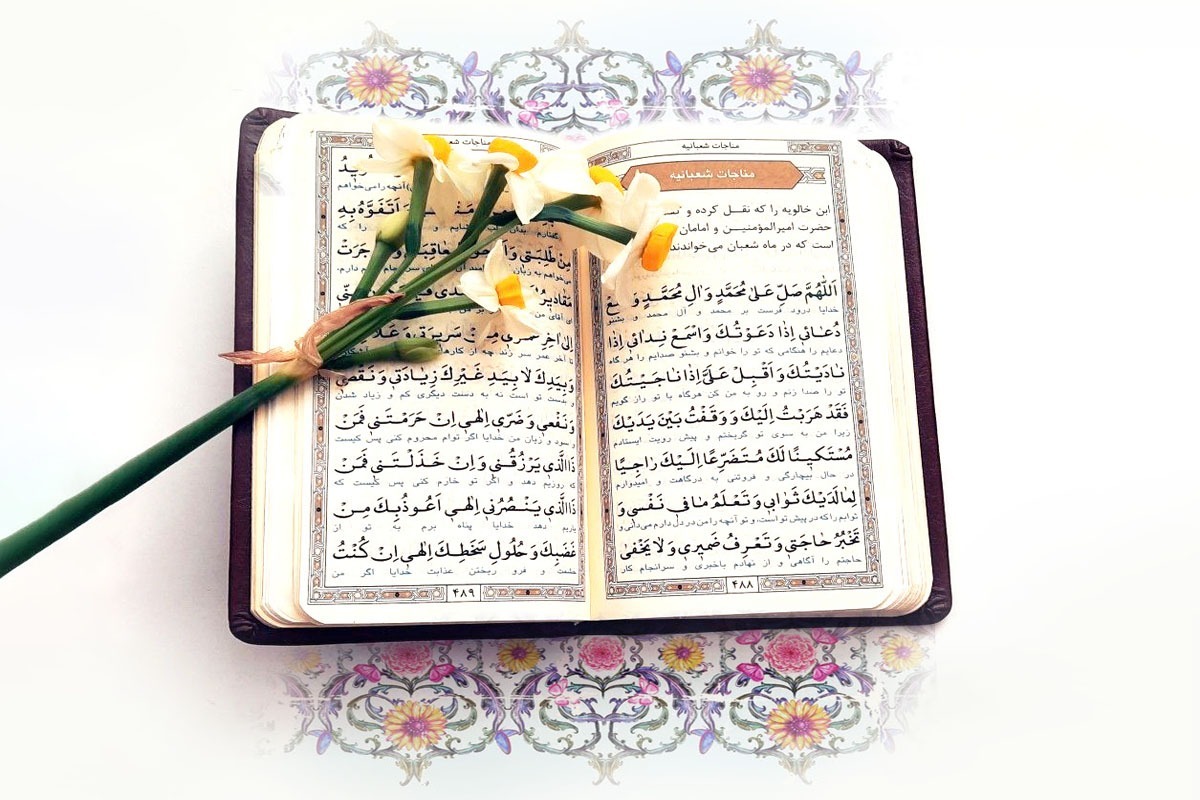 مناجات شعبانیه
مناجات شعبانیه
ابن خالویه را که نقـل کرده و
حضرت امیرالمؤمنیـن و امامان
است که در ماه شعبان می‌خواندند
اَللّٰهُمَّ صَلِّ عَلیٰ مُحَمَّدٍ وَاٰلِ مُحَمَّدٍ وَ
خدایا درود فرست بر محمد و آل محمد و بشنو
دُعائی اِذا دَعَوْتُكَ وَاسْمَعْ نِدائی اِذا
دعایم را هنگامی که تو را خوانم و بشنو صدایم را هر گاه
نادَیْتُكَ وَاَقْبِلْ عَلَیَّ اِذا ناجَیْتُكَ
تو را صدا زنم و رو به من کن هرگاه با تو راز گویم
فَقَدْ هَرَبْتُ اِلَیْكَ وَ وَقَفْتُ بَیْنَ یَدَیْكَ
زیرا من به سوی تو گریختم و پیش رویت ایستادم
مُسْتَکینًا لَكَ مُتَضَرِّعًا اِلَیْكَ راجِیًا
در حال بیچارگی و فروتنی به درگاهت و امیدوارم
لِما لَدَیْكَ ثَوابی وَ تَعْلَمُ ما فی نَفْسی وَ
ثوابم را که در پیش تو است، و تو آنچه را من در دل دارم می‌دانی و
تَخْبُرُ حاجَتی وَ تَعْرِفُ ضَمیری وَ لا یَخْفیٰ
حاجتم را آگاهی و از نهادم باخبری و سرانجام کار
۴۸۸
مناجات شعبانیه
آنچه را می‌خواهم
اَتَفَوَّهُ بِهِ
را که
مِنْ طَلِبَتی وَ
جَرَتْ
می‌خواهم به زبان
دارم.
مَقادیرُ
ای آقای من
اِلیٰ اٰخِرِ
مِنْ سَریرَتی وَ
تا آخر عمر سر زند چه از
وَ بِیَدِكَ لا بِیَدِ غَیْرِكَ زِیادَتی وَ نَقْصی
بدست تو است نه به دست دیگری کم و زیاد شدن
وَ نَفْعی وَ ضَرّی اِلٰهی اِنْ حَرَمْتَنی فَمَنْ
و سود و زیان من خدایا اگر توام محروم کنی پس کیست
ذَا الَّذی یَرْزُقُنی وَ اِنْ خَذَلْتَنی فَمَنْ
که روزیم دهد و اگر تو خارم کنی پس کیست که
ذَا الَّذی یَنْصُرُنی اِلٰهی اَعُوذُ بِكَ مِنْ
یاریم دهد خدایا پناه برم به تو از
غَضَبِكَ وَ حُلُولِ سَخَطِكَ اِلٰهی اِنْ کُنْتُ
خشمت و فرو ریختن عذابت خدایا اگر من
۴۸۹